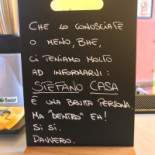 CHE LO CONOSCIATE
O MENO, BHE,
CI TENIAMO MOLTO
AD INFORMARVI:
STEFANO CASA
È UNA BRUTTA PERSONA
MA "DENTRO" EH!
SI SI.
DAVVERO.